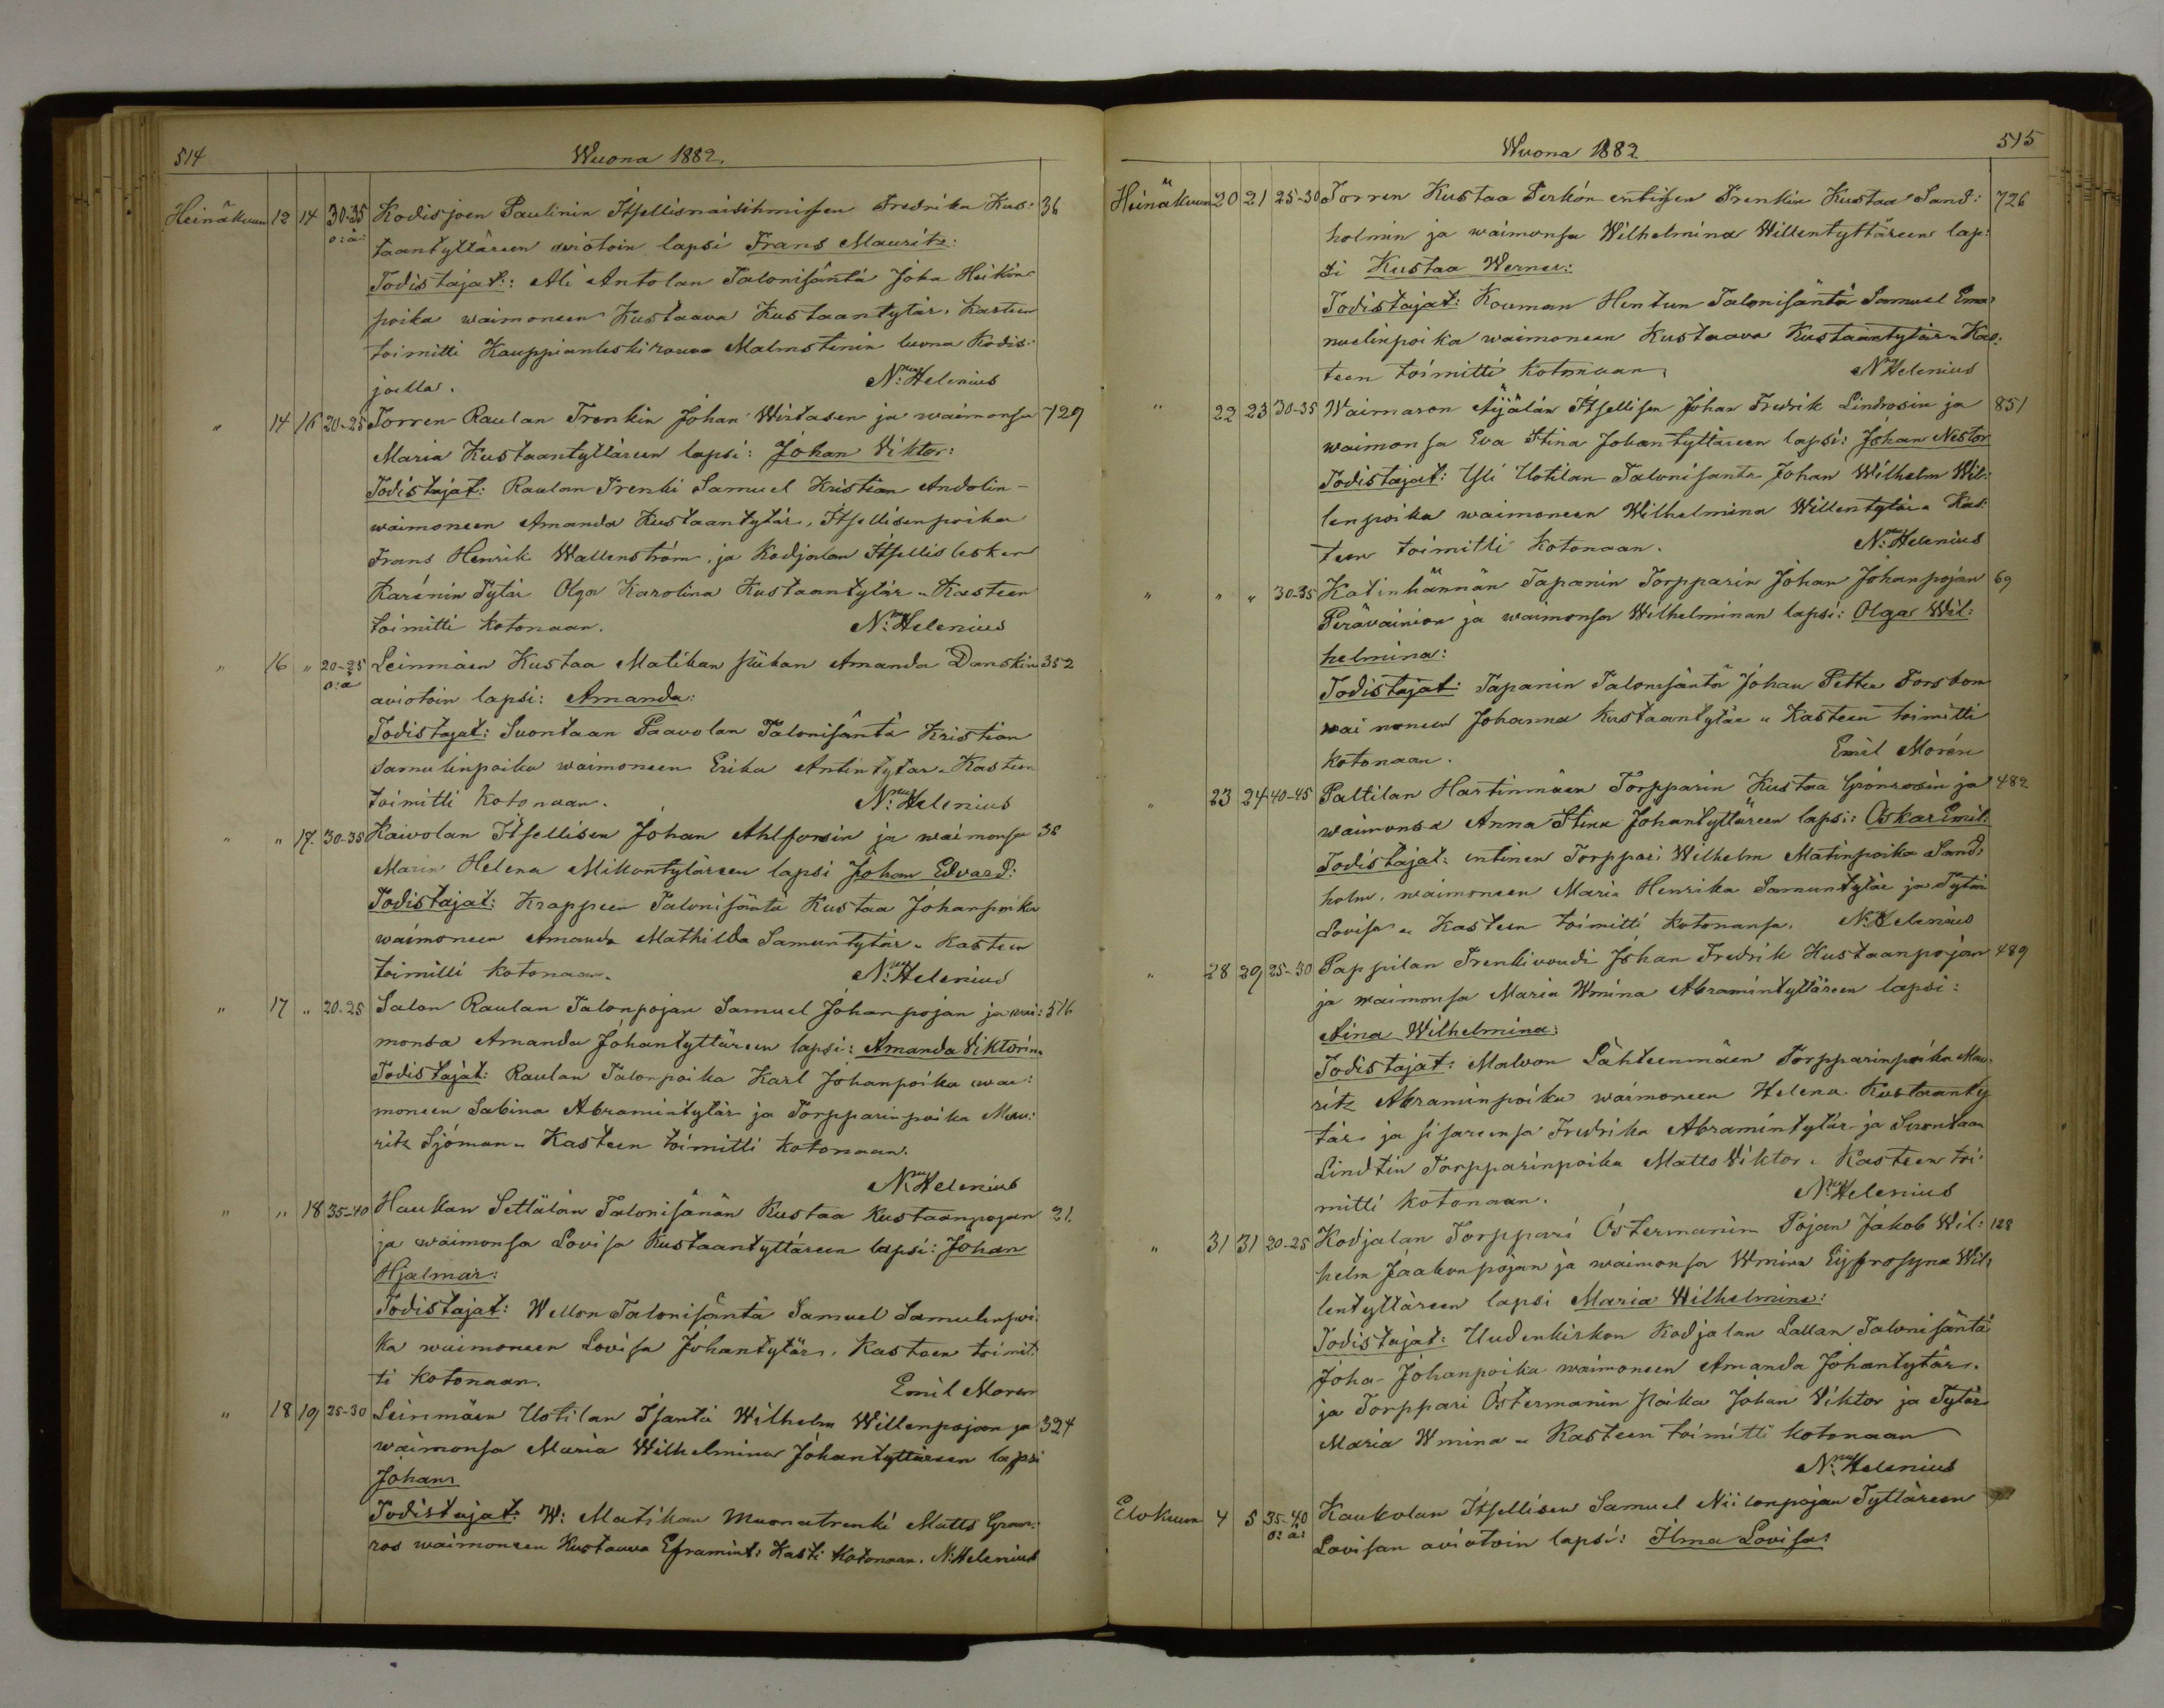 514 Wuona 1882.
Heinäkuun 12 14 30-35 Kodisjoen Paulinin Itsellisnaisihmisen Fredrika Kus: 36
o: ä: taantyttären aviotoin lapsi Frans Mauritz:
Todistajat: Ali Antolan Talonisäntä Joha Heikin
poika waimoneen Kustaava Kustaantytär. Kasteen
toimitti Kauppianleski rouva Malmstenin luona Kodis:
joella. N: Helenius
" 14 16 20-25 Torren Raulan Trenkin Johan Wirtasen ja waimonsa 729
Maria Kustaantyttäreen lapsi: Johan Viktor:
Todistajat: Raulan Trenki Samuel Kristian Andolin-
waimoneen Amanda Kustaantytär, Itsellisenpoika
Frans Henrik Wallenström, ja Kodjalan Itsellislesken
Karénin Tytär Olga Karolina Kustaantytär. Kasteen
toimitti kotonaan. N: Helenius
" 16 " 20-25 Leinmäen Kustaa Matikan piikan Amanda Danskin 352
o: ä aviotoin lapsi: Amanda:
Todistajat: Suontaan Paavolan Talonisäntä Kristian
Samulinpoika waimoneen Erika Antintytär. Kasteen
toimitti kotonaan. N: Helenius
" " 17. 30-35 Kaivolan Itsellisen Johan Ahlforsin ja waimonsa 38
Maria Helena Mikontytäreen lapsi Johan Edvard:
Todistajat: Krappeen Talonisäntä Kustaa Johanpoika
waimoneen Amanda Mathilda Samuntytär. Kasteen
toimitti kotonaan. N: Helenius
" 17 " 20-25 Salon Raulan Talonpojan Samuel Johanpojan ja wai: 516
monsa Amanda Johantyttäreen lapsi: Amanda Viktorina
Todistajat: Raulan Talonpoika Karl Johanpoika wai:
moneen Sabina Abramintytär ja Torpparinpoika Mau:
ritz Sjöman. Kasteen toimitti kotonaan.
N: Helenius
" " 18 35-40 Haukan Settälän Talonisänän Kustaa Kustaanpojan 21.
ja waimonsa Lovisa Kustaantyttäreen lapsi: Johan
Hjalmar:
Todistajat: Wellon Talonisäntä Samuel Samulinpoi:
ka waimoneen Lovisa Johantytär. Kasteen toimit:
ti kotonaan. Emil Moren
" 18 19 25-30 Leinmäen Uotilan Isäntä Wilhelm Willenpojan ja 324
waimonsa Maria Wilhelmina Johantyttäreen lapsi
Johan
Todistajat: W: Matikan Muonatrenki Matts Grön:
ros waimoneen Kustaava Eframint: Kasti kotonaan. N: Helenius
Wuona 1882 515
Heinäkuun 20 21 25-30 Torren Kustaa Perkön entisen Trenkin Kustaa Sand: 726
holmin ja waimonsa Wilhelmina Willentyttäreen lap:
si Kustaa Werner:
Todistajat: Kouman Hentun Talonisäntä Samuel Ema:
nuelinpoika waimoneen Kustaava Kustaantytär. Kas:
teen toimitti kotonaan. N: Helenius
" 22 23 30-35 Waimaron Äijälän Itsellisen Johan Fredrik Lindrosin ja 851
waimonsa Eva Stina Johantyttäreen lapsi: Johan Nestor
Todistajat: Yli Uotilan Talonisäntä Johan Wilhelm Wil:
lenpoika waimoneen Wilhelmina Willentytär. Kas:
teen toimitti kotonaan. N: Helenius
" " " 30-35 Katinhännän Tapanin Torpparin Johan Johanpojan 69
Perävainion ja waimonsa Wilhelminan lapsi: Olga Wil:
helmina:
Todistajat: Tapanin Talonisäntä Johan Petter Forsbom
waimoneen Johanna Kustaantytär. Kasteen toimitti
kotonaan. Emil Morén
" 23 24 40-45 Paltilan Hartinmäen Torpparin Kustaa Grönrosin ja 482
waimonsa Anna Stina Johantyttäreen lapsi: Oskar Emil.
Todistajat: entinen Torppari Wilhelm Matinpoika Sand:
holm, waimoneen Maria Henrika Samuntytär ja Tytär
Lovisa. Kasteen toimitti kotonansa. N: Helenius
" 28 29 25-30 Pappilan Trenkivoudi Johan Fredrik Kustaanpojan 489
ja waimonsa Maria Wmina Abramintyttäreen lapsi:
Aina Wilhelmina:
Todistajat: Malvon Lähteenmäen Torpparinpoika Mau:
ritz Abraminpoika waimoneen Helena Kustaanty
tär. ja sisareensa Fredrika Abramintytär ja Suontaan
Lindtin Torpparinpoika Matts Viktor. Kasteen toi:
mitti kotonaan. N: Helenius
" 31 31 20-25 Kodjalan Torppari Östermanin Pojan Jakob Wil: 128
helm Jaakonpojan ja waimonsa Wmina Eyfrosyna Wil:
lentyttäreen lapsi Maria Wilhelmina:
Todistajat: Uudenkirkon Kodjalan Lallan Talonisäntä
Joha Johanpoika waimoneen Amanda Johantytär.
ja Torppari Östermanin Poika Johan Viktor ja Tytär
Maria Wmina. Kasteen toimitti kotonaan
N: Helenius
Elokuun 4 5 35-40 Kaukolan Itsellisen Samuel Niilonpojan Tyttäreen
o: ä: Lovisan aviotoin lapsi: Ilma Lovisa: